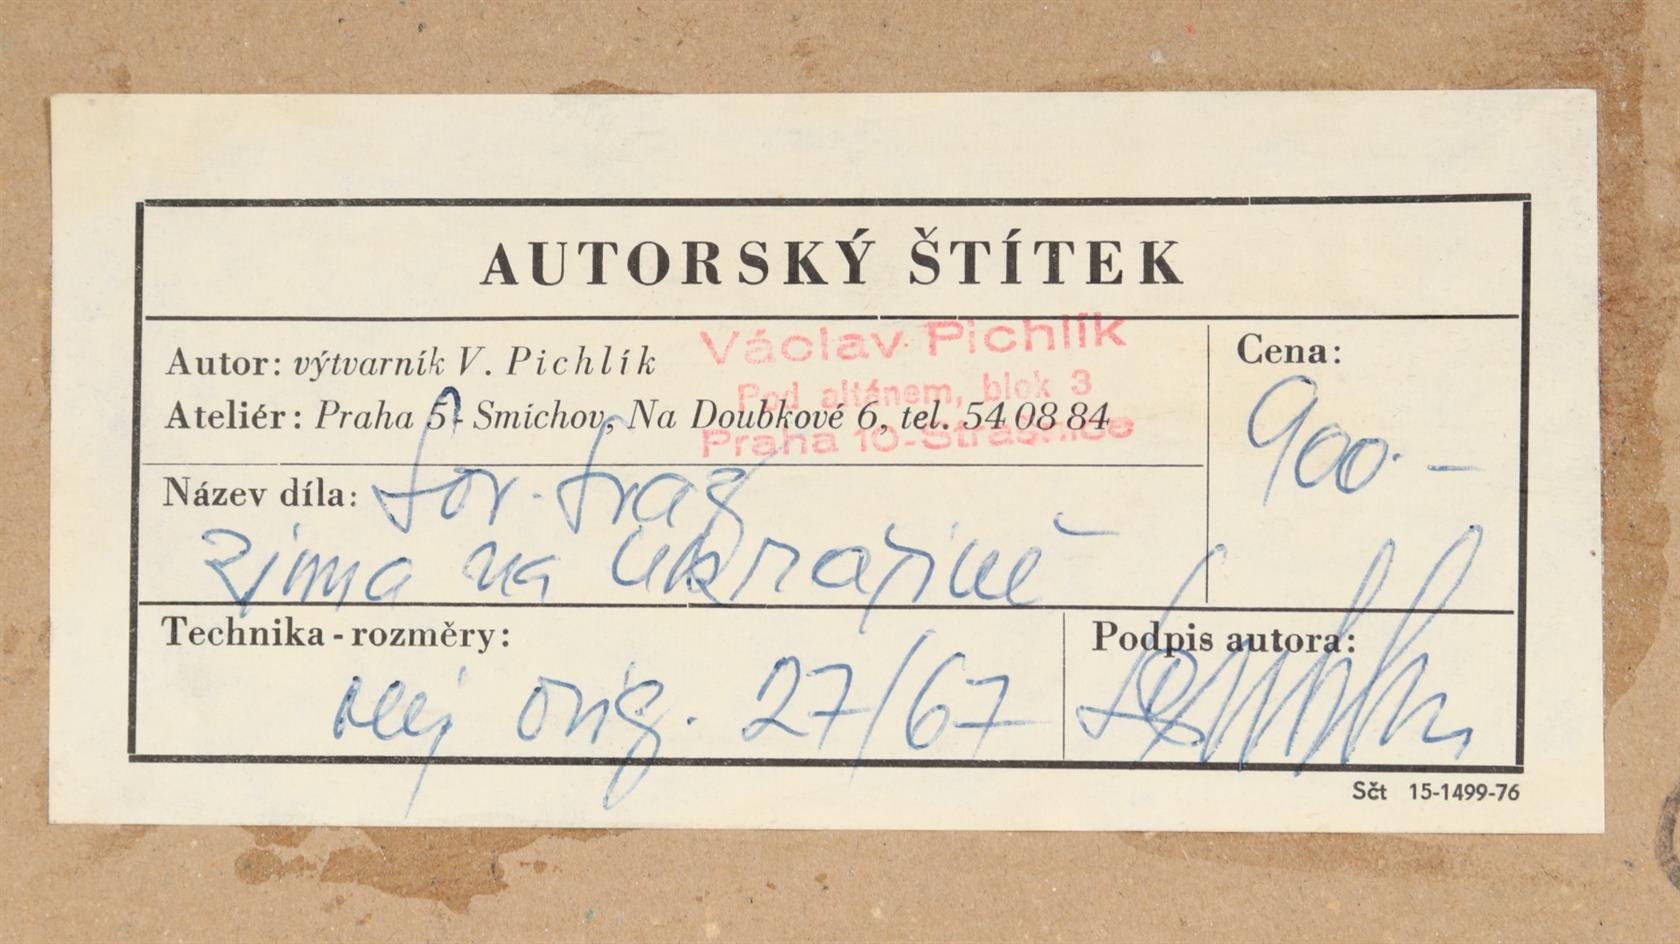 AUTORSKÝ ŠTÍTEK
Autor: výtvarník V. Pichlík
Václav Pichlík
Pod altánem, blok 3
Praha 10-Strašnice
Ateliér: Praha 5 - Smíchov, Na Doubkové 6, tel. 54 08 84
Cena:
900.-
Název díla:
zima na Ukrajině
Technika - rozměry:
olej orig. 27/67
Podpis autora:
Sčt 15-1499-76